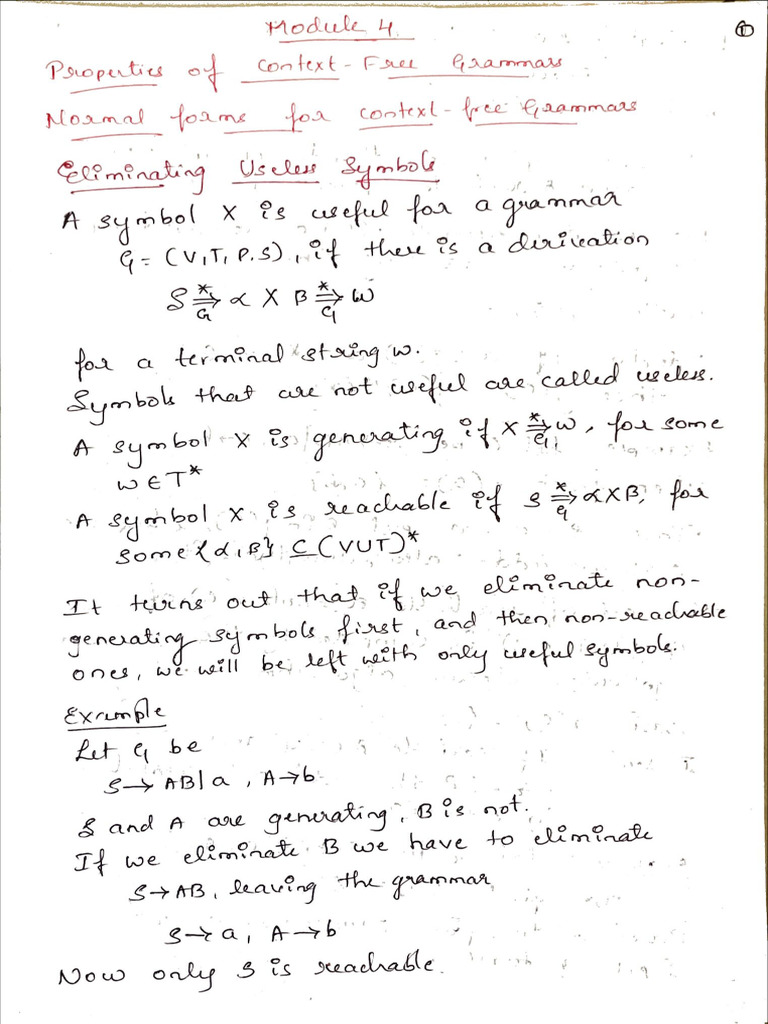 Module 4
①
Properties of Context-Free Grammars
Normal forms for context-free Grammars
Eliminating Useless Symbols
A symbol X is useful for a grammar
G = (V,T,P,S), if there is a derivation
S ⇒*G α X β ⇒*G w
for a terminal string w.
Symbols that are not useful are called useless.
A symbol X is generating if X ⇒*G w, for some
w ∈ T*
A symbol X is reachable if S ⇒*G αXβ, for
some {α,β} ⊆ (VUT)*
It turns out that if we eliminate non-
generating symbols first, and then non-reachable
ones, we will be left with only useful symbols.
Example
Let G be
S → AB|a , A → b
S and A are generating, B is not.
If we eliminate B we have to eliminate
S → AB, leaving the grammar
S → a, A → b
Now only S is reachable.